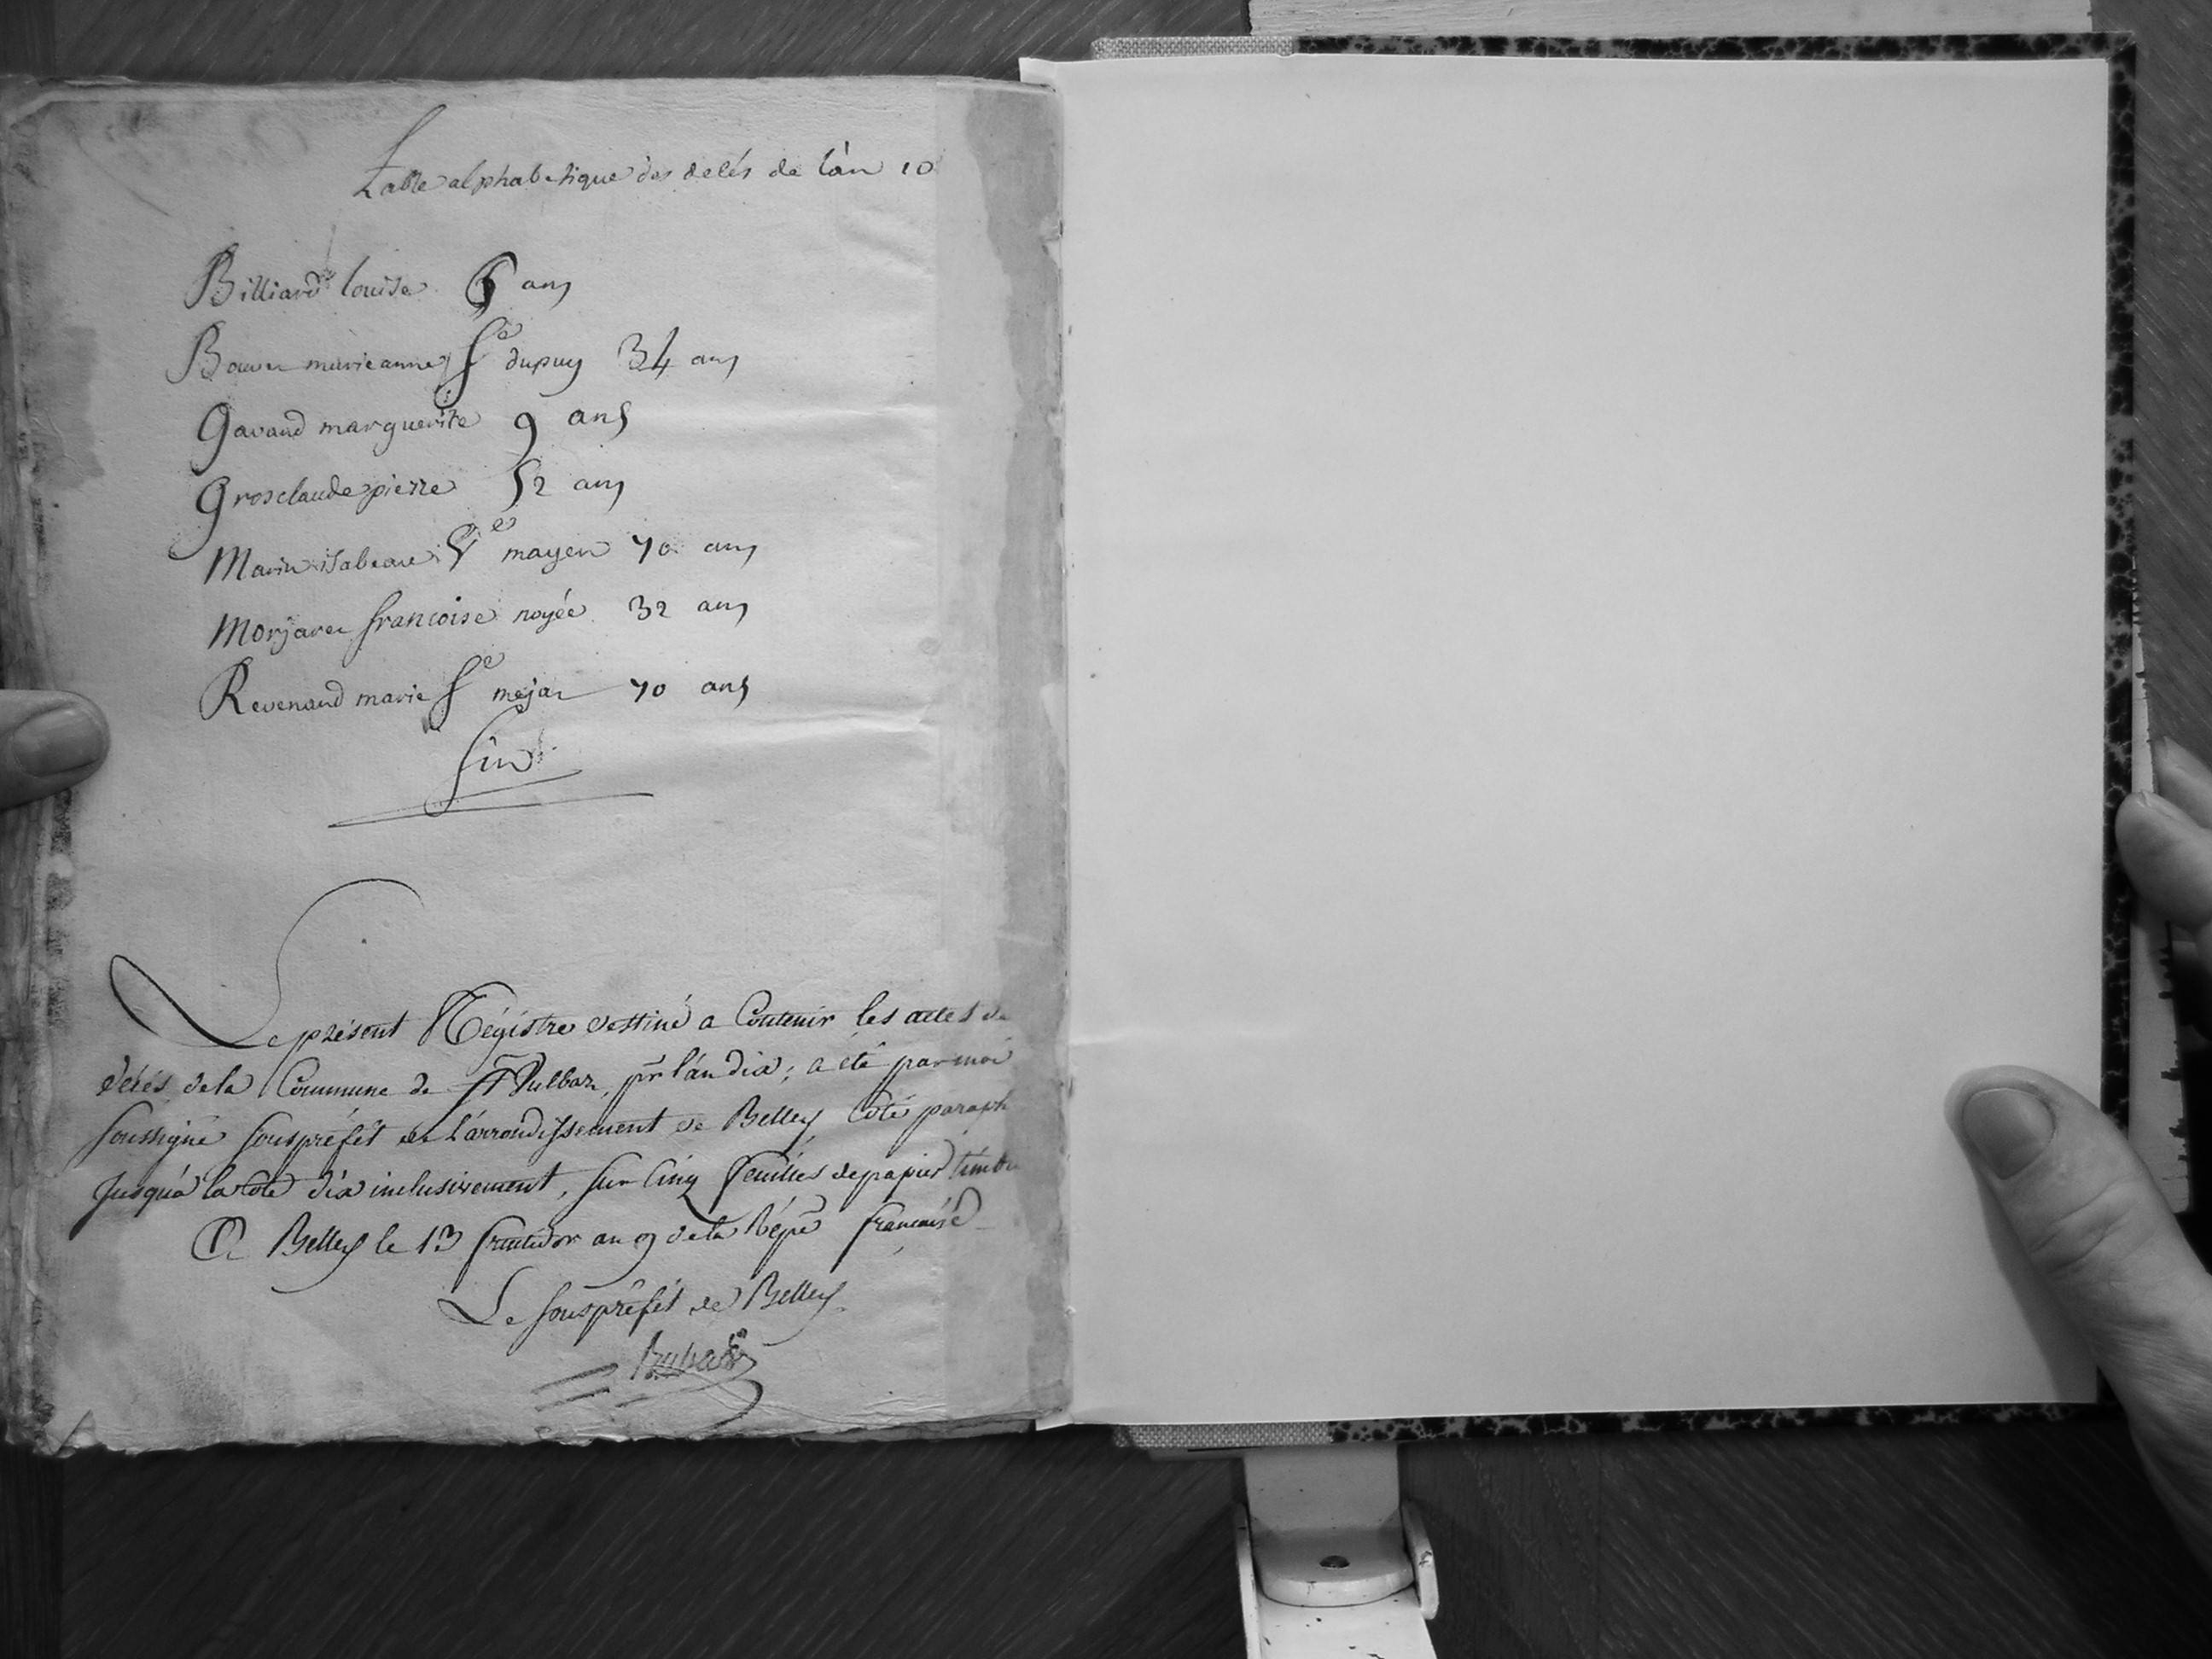 Table alphabetique des delés de l'an 10
Billiard louise 6 ans
Bouver marieanne fe dupuy 34 ans
Gavand marguerite 9 ans
Grosclaude pierre 52 ans
Marin isabeau Ve mayen 70 ans
Morjaret francoise noyée 32 ans
Revenand marie fe mejat 70 ans
fin
Le présent Régistre destiné a Contenir les actes de
délés de la Commune de St Vulbaz, pr l'an dix; a été par moi
soussigné souspréfét de l'arrondissement de Belley Coté paraph
jusqu'à la Cote dix inclusivement, sur Cinq feuilles de papier timbré
A Belley le 13 fructidor an 9 de la Répe francaise
Le souspréfét de Belley